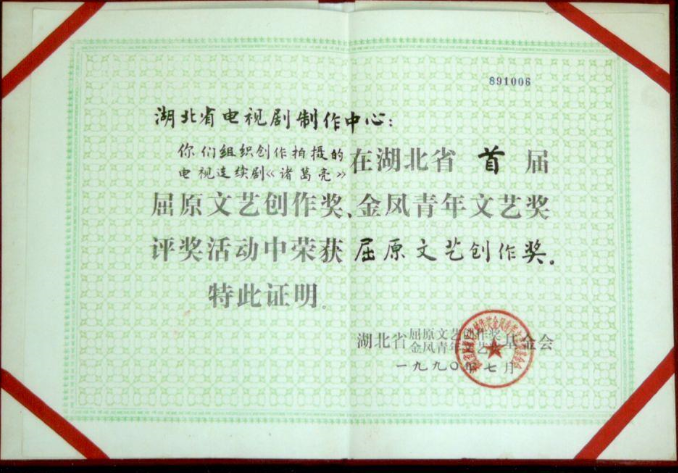 891006
湖北省电视剧制作中心:
你们组织创作拍摄的
电视连续剧《诸葛亮》在湖北省 首 届
屈原文艺创作奖、金凤青年文艺奖
评奖活动中荣获 屈原文艺创作奖。
特此证明
湖北省屈原文艺创作奖
金凤青年文艺奖基金会
一九九〇年七月